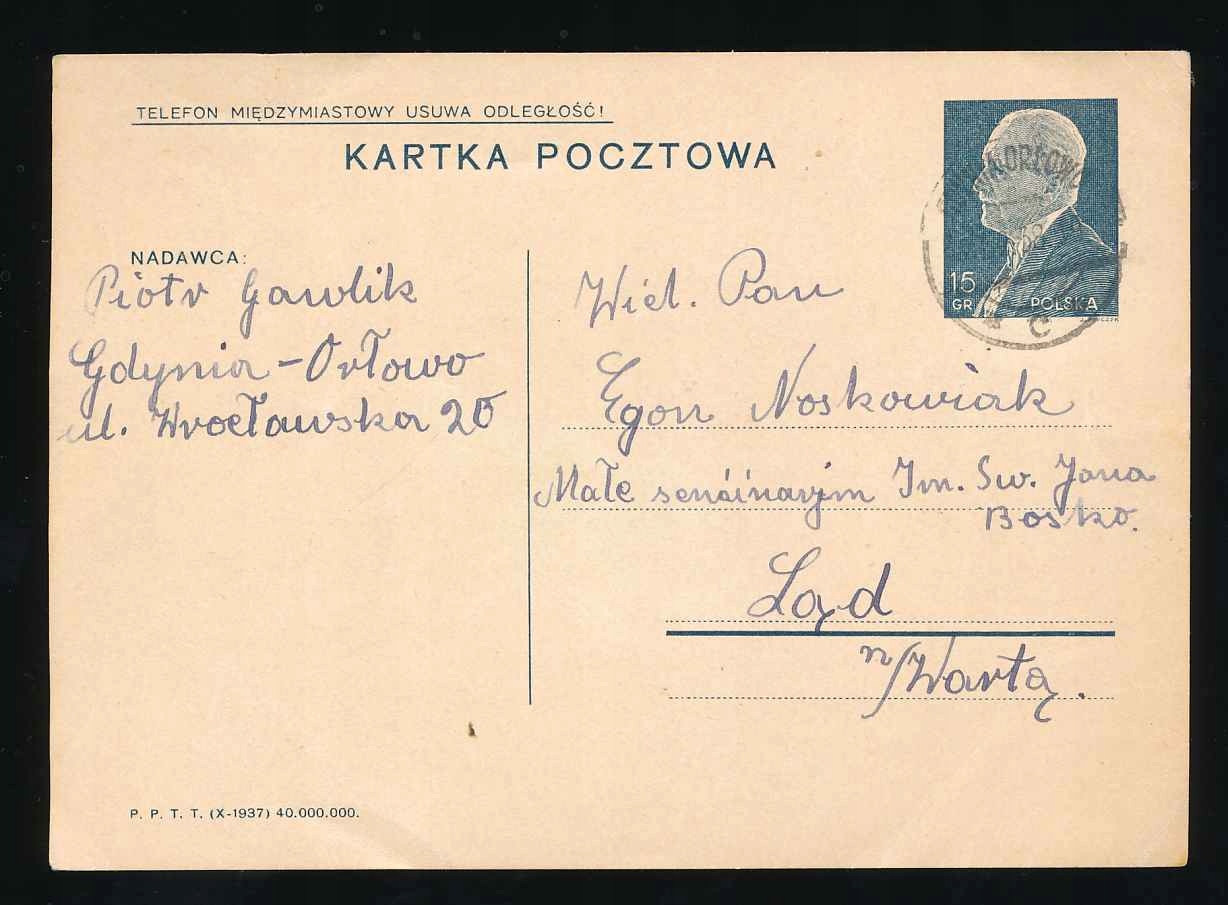 TELEFON MIĘDZYMIASTOWY USUWA ODLEGŁOŚĆ!
KARTKA POCZTOWA
15
GR
POLSKA
C
NADAWCA:
Piotr Gawlik
Gdynia - Orłowo
ul. Wrocławska 20
Wiel. Pan
Egon Noskowiak
Małe Im. Św. Jana
Bosko.
Ląd
n/Wartą.
P. P. T. T. (X-1937) 40.000.000.